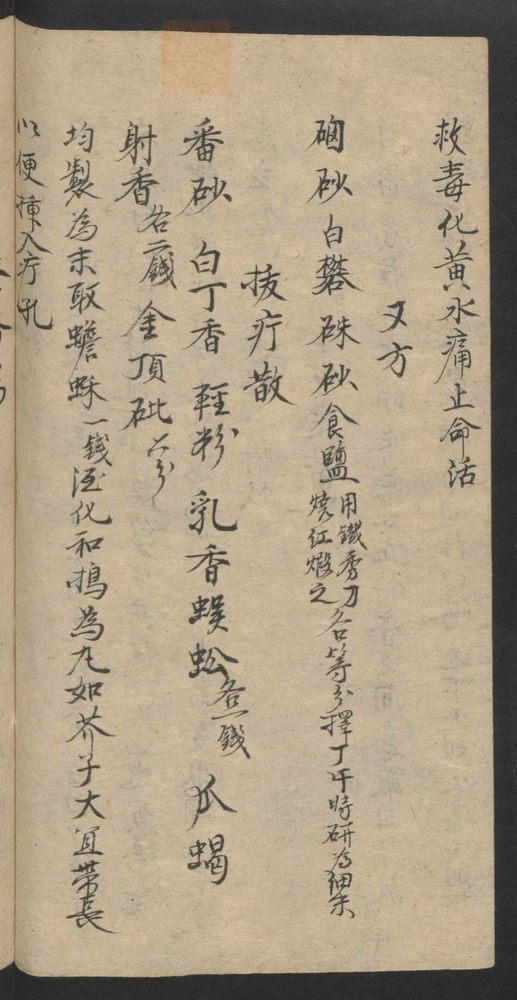 救毒化黃水痛止命活
又方
硇砂白礬硃砂食鹽用鐵秀刀燒紅煅之各等分擇丁午時研為細末
拔疔散
番砂 白丁香 輕粉 乳香 蜈蚣各一錢 瓜蝎
射香各二錢 金頂砒六分
均製為末取蟾酥一錢酒化和搗為丸如芥子大宜帶長
以便揷入疔孔